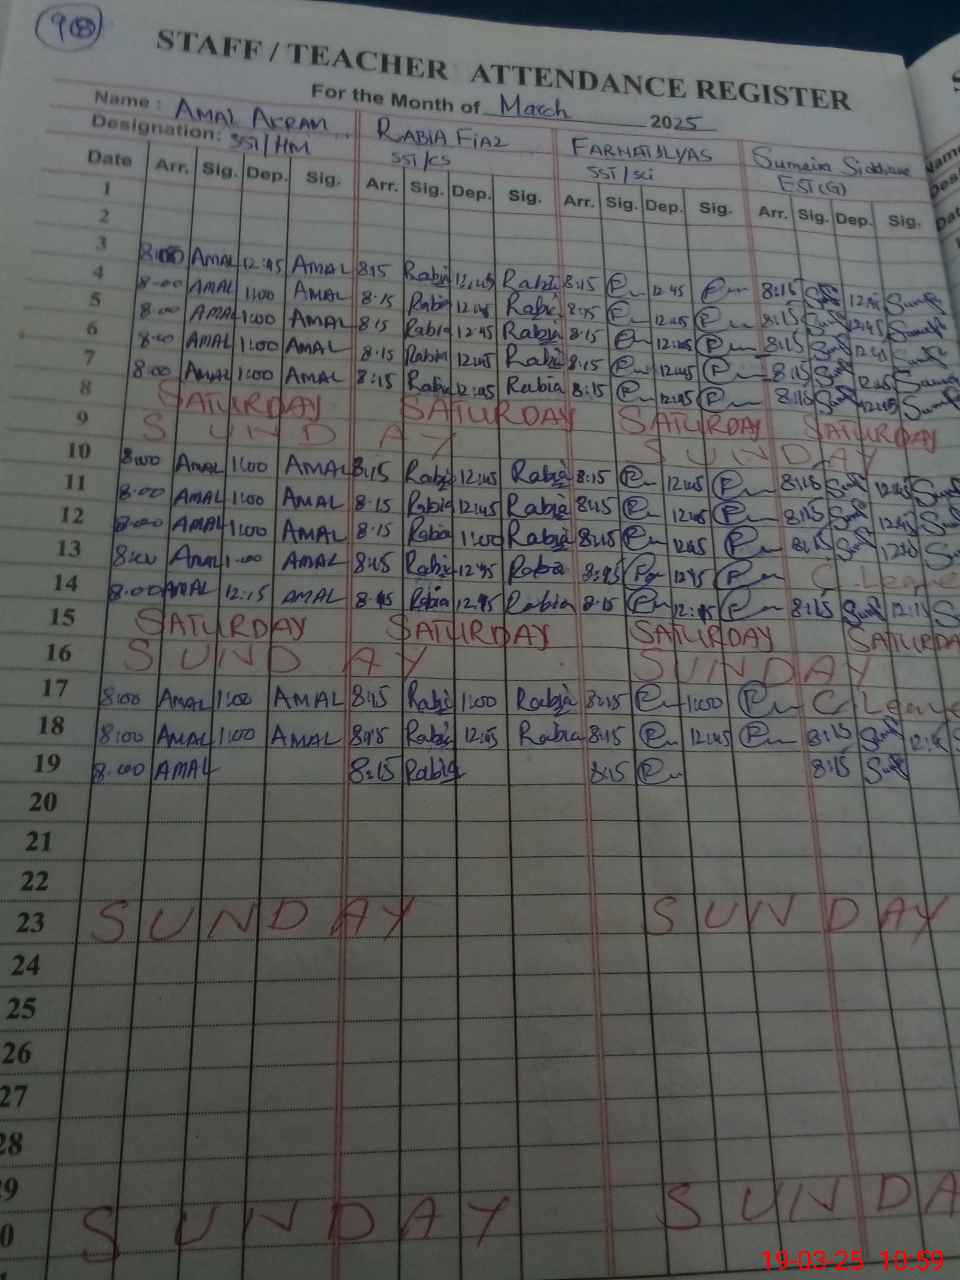 98
STAFF / TEACHER ATTENDANCE REGISTER
For the Month of March 2025
Name : AMAL AKRAM RABIA FIAZ FARHAT ILYAS Sumaira
Designation: SST/HM SST/CS SST/sci EST(G)
Date Arr. Sig. Dep. Sig. Arr. Sig. Dep. Sig. Arr. Sig. Dep. Sig. Arr. Sig. Dep. Sig.
1
2
3 8:00 AMAL 12:45 AMAL 8:15 Rabia 12:45 Rabia 8:15 12:45 8:15
4 8:00 AMAL 1:00 AMAL 8:15 Rabia 12:45 Rabia 8:15 12:45 8:15 12:45
5 8:00 AMAL 1:00 AMAL 8:15 Rabia 12:45 Rabia 8:15 12:45 8:15
6 8:00 AMAL 1:00 AMAL 8:15 Rabia 12:45 Rabia 8:15 12:45 8:15 12:45
7 8:00 AMAL 1:00 AMAL 8:15 Rabia 12:45 Rabia 8:15 12:45 8:15 12:45
8 SATURDAY SATURDAY SATURDAY SATURDAY
9 SUNDAY SUNDAY
10 8:00 AMAL 1:00 AMAL 8:15 Rabia 12:45 Rabia 8:15 12:45 8:15 12:45
11 8:00 AMAL 1:00 AMAL 8:15 Rabia 12:45 Rabia 8:15 12:45 8:15 12:45
12 8:00 AMAL 1:00 AMAL 8:15 Rabia 1:00 Rabia 8:15 12:45 8:15
13 8:00 AMAL 1:00 AMAL 8:15 Rabia 12:45 Rabia 12:45 C. Leave
14 8:00 AMAL 12:15 AMAL Rabia Rabia 8:15 8:15
15 SATURDAY SATURDAY SATURDAY SATURDAY
16 SUNDAY SUNDAY
17 8:00 AMAL 1:00 AMAL 8:15 Rabia 1:00 Rabia 8:15 1:00 C Leave
18 8:00 AMAL 1:00 AMAL 8:15 Rabia 12:45 Rabia 8:15 12:45 8:15
19 8:00 AMAL 8:15 Rabia 8:15 8:15
20
21
22
23 SUNDAY SUNDAY
24
25
26
27
28
9
0 SUNDAY SUNDA
19-03-25 10:59